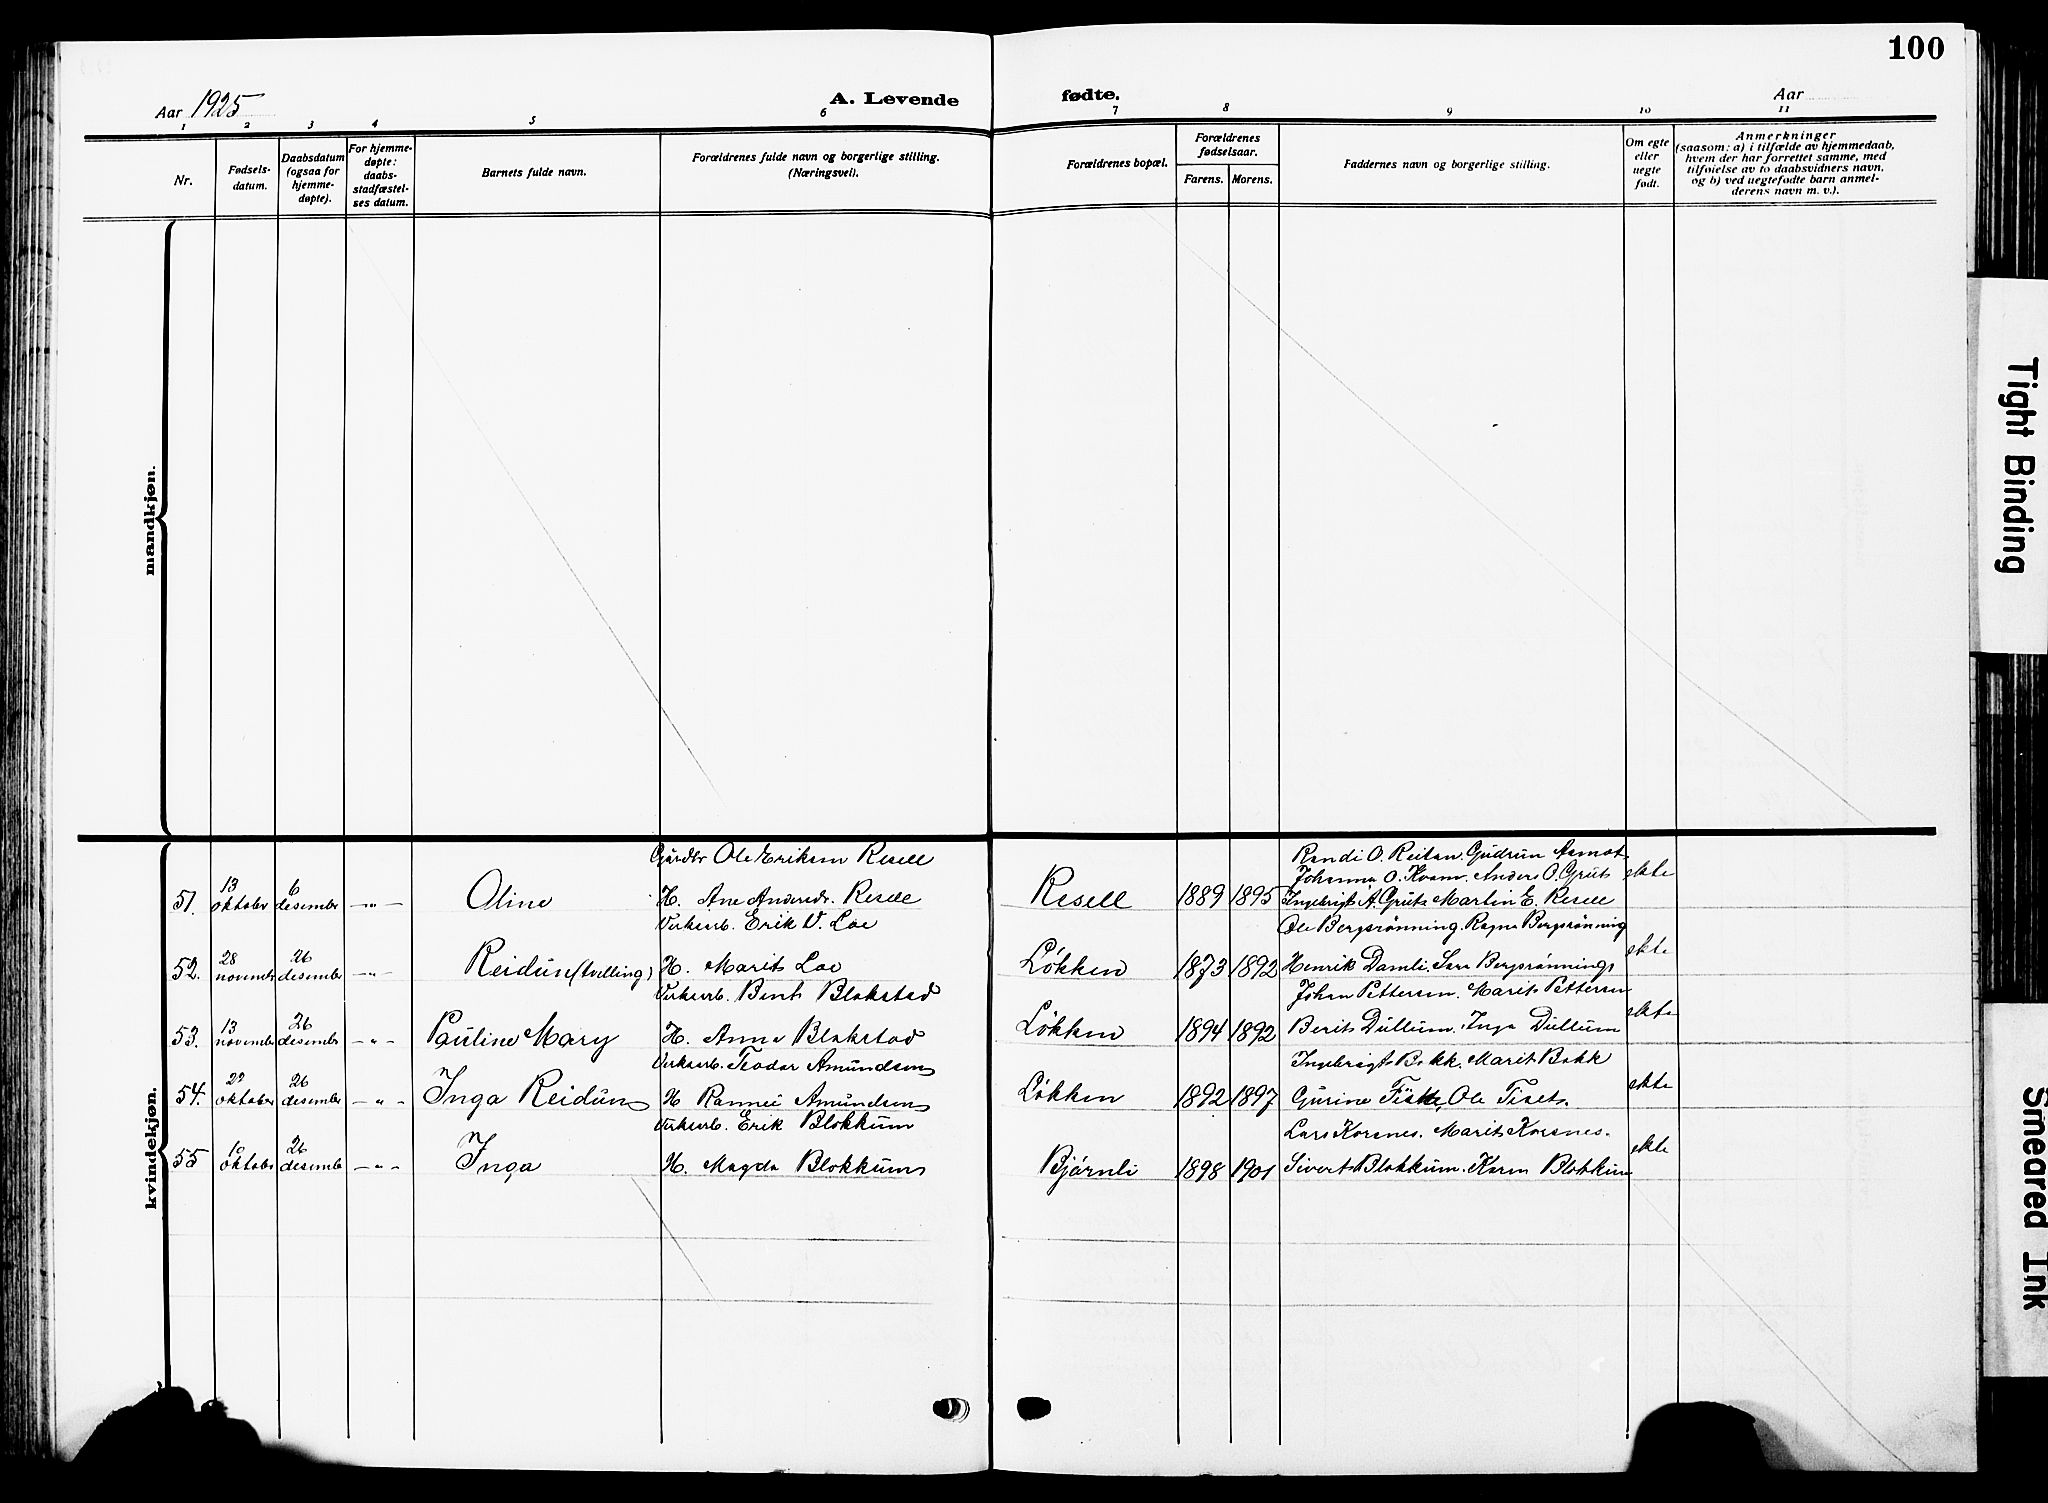 100
Aar 1925
A. Levende
fødte.
Aar
1 2 3 4 5 6 7 8 9 10 11
Nr.
Fødsels-
datum.
Daabsdatum
(ogsaa for
hjemme-
døpte).
For hjemme-
døpte:
daabs-
stadfæstel-
ses datum.
Barnets fulde navn.
Forældrenes fulde navn og borgerlige stilling.
(Næringsvei).
Forældrenes bopæl.
Forældrenes
fødselsaar.
Farens. Morens.
Faddernes navn og borgerlige stilling.
Om egte
eller
uegte
født.
Anmerkninger
(saasom: a) i tilfælde av hjemmedaab,
hvem der har forrettet samme, med
tilføielse av to daabsvidners navn,
og b) ved uegtefødte barn anmel-
derens navn m. v.).
mandkjøn.
kvindekjøn.
Gårdbr Ole Eriksen Resell
Randi O. Reitan. Gudrun Aamot.
Johanna O. Kvam. Anders O. Gruts
51. 13 oktober 6 desember -"- Aline H. Ane Andersdr. Resell Resell 1889 1895 Ingebrigt A. Gruts Martin E. Resell ekte
Verksarb. Erik O. Loe
Ole Bergsrønning. Ragna Bergsrønning
52. 28 november 26 desember -"- Reidun (tvilling) H. Marit Loe Løkken 1873 1892 Henrik Damli. Sara Bergsrønning ekte
Verksarb. Bent Blokstad
Johan Pettersen. Marit Pettersen
53. 13 november 26 desember -"- Pauline Mary H. Anna Blokstad Løkken 1894 1892 Berit Dullum. Inga Dullum ekte
Verksarb. Teodor Amundsen
Ingebrigt Bakk. Marit Bakk
54. 29 oktober 26 desember -"- Inga Reidun H Rannei Amundsen Løkken 1892 1897 Gurine, Ole ekte
Verksarb. Erik Blokkum
Lars Korsnes. Marit Korsnes.
55 10 oktober 26 desember -"- Inga H. Magda Blokkum Bjørnli 1898 1901 Sivert Blokkum. Karen Blokkum ekte
Tight Binding
Smeared Ink